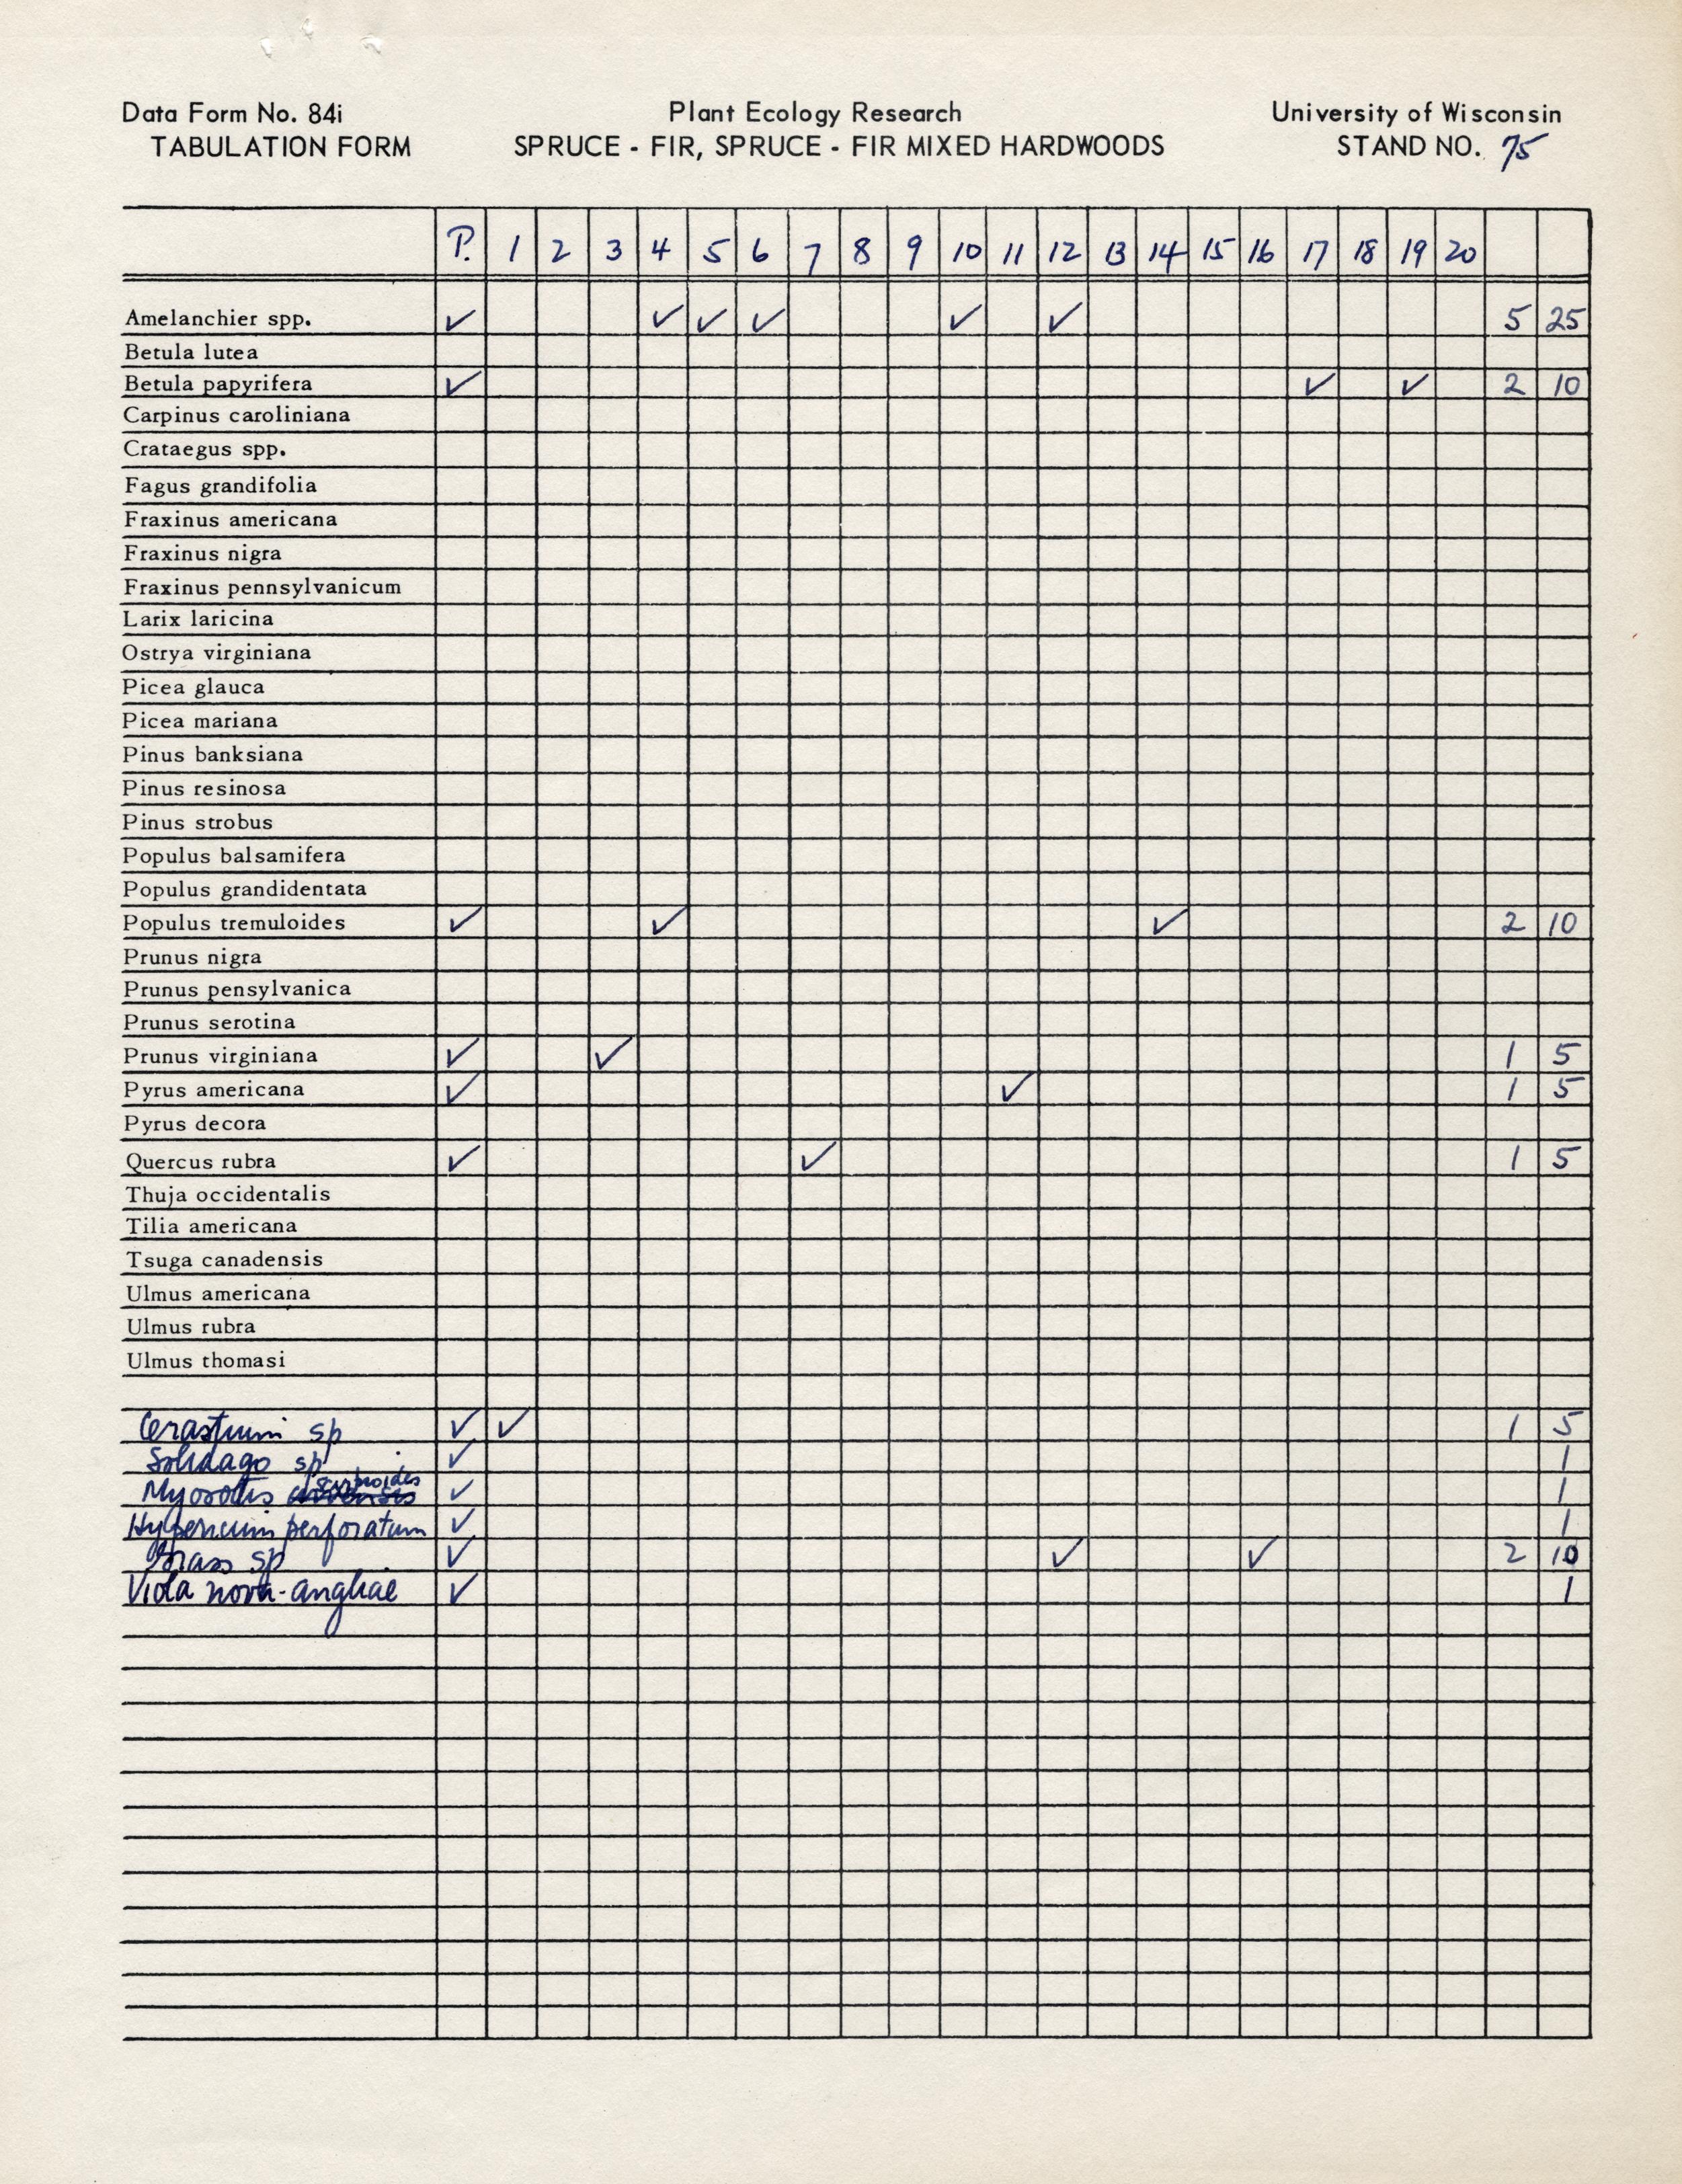 Data Form No. 84i Plant Ecology Research University of Wisconsin
TABULATION FORM SPRUCE - FIR, SPRUCE - FIR MIXED HARDWOODS STAND NO. 75
P. 1 2 3 4 5 6 7 8 9 10 11 12 13 14 15 16 17 18 19 20
Amelanchier spp. ✓ ✓ ✓ ✓ ✓ ✓ 5 25
Betula lutea
Betula papyrifera ✓ ✓ ✓ 2 10
Carpinus caroliniana
Crataegus spp.
Fagus grandifolia
Fraxinus americana
Fraxinus nigra
Fraxinus pennsylvanicum
Larix laricina
Ostrya virginiana
Picea glauca
Picea mariana
Pinus banksiana
Pinus resinosa
Pinus strobus
Populus balsamifera
Populus grandidentata
Populus tremuloides ✓ ✓ ✓ 2 10
Prunus nigra
Prunus pensylvanica
Prunus serotina
Prunus virginiana ✓ ✓ 1 5
Pyrus americana ✓ ✓ 1 5
Pyrus decora
Quercus rubra ✓ ✓ 1 5
Thuja occidentalis
Tilia americana
Tsuga canadensis
Ulmus americana
Ulmus rubra
Ulmus thomasi
Cerastium sp ✓ ✓ 1 5
Solidago sp ✓ 1
Myosotis ✓ 1
Hypericum perforatum ✓ 1
Grass sp ✓ ✓ ✓ 2 10
Viola nova-angliae ✓ 1